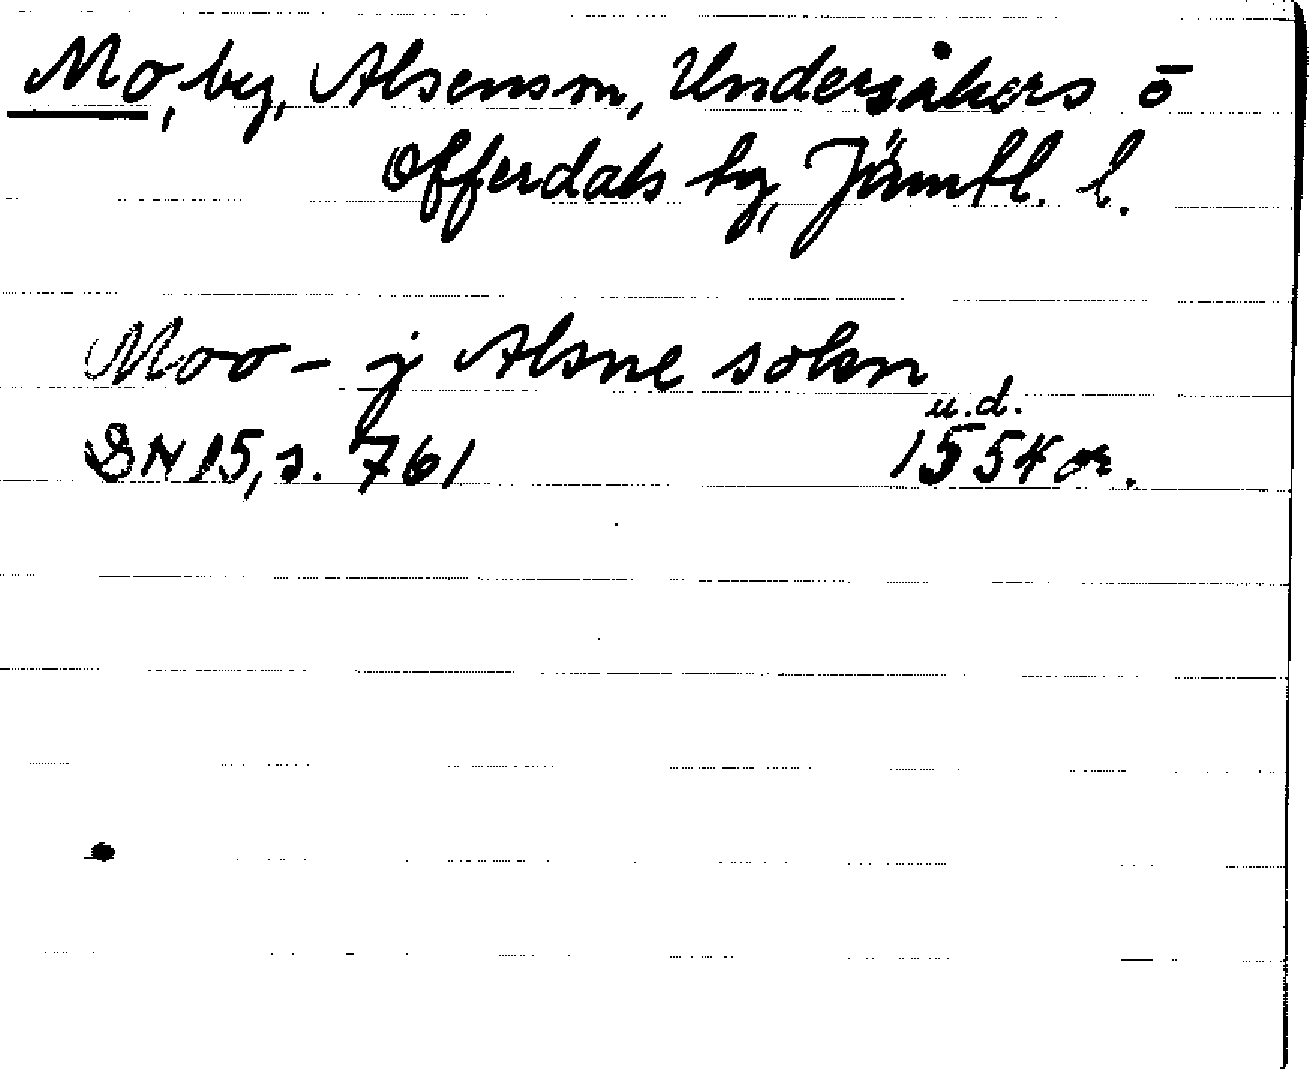 Mo, by, Alsens sn, Undersåkers o
Offerdals tg, Jämtl. l.
Moo – j Alsne sokn
u.d.
DN 15, s. 761 1554 or.